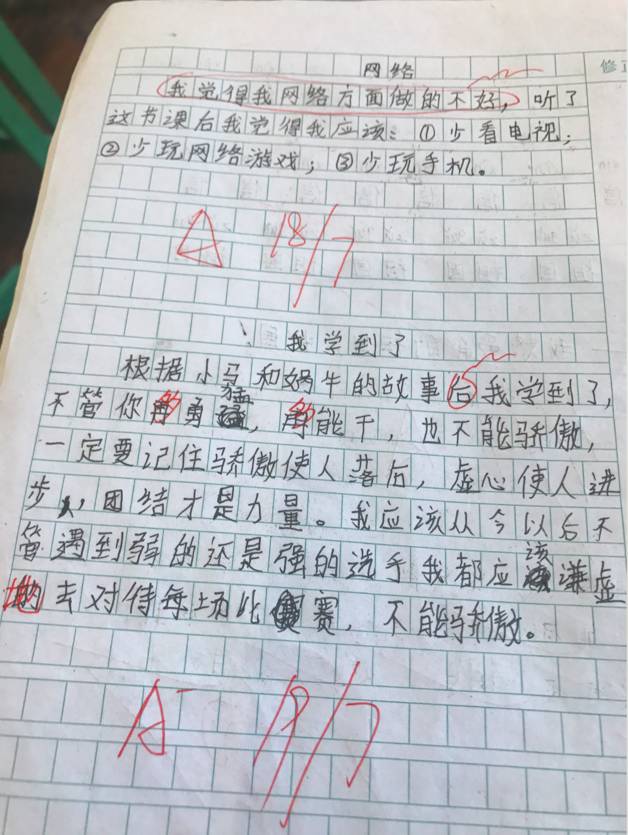 网络
我觉得我网络方面做的不好，听了
这节课后我觉得我应该：①少看电视；
②少玩网络游戏；③少玩手机。
A 18/7
我学到了
根据小马和蜗牛的故事后我学到了，
不管你多勇猛，多能干，也不能骄傲，
一定要记住骄傲使人落后，虚心使人进
步，团结才是力量。我应该从今以后不
管遇到弱的还是强的选手我都应该谦虚
地去对待每一场比赛，不能骄傲。
A- 19/7